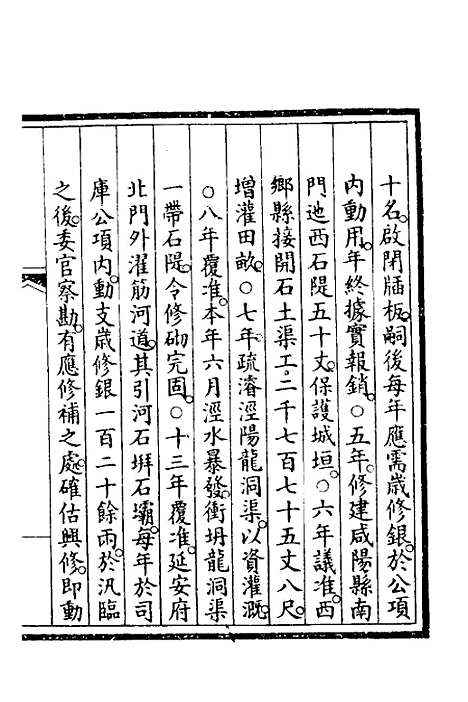 十名。啟閉牐板。嗣後每年應需歲修銀。於公項
內動用。年終據實報銷。○五年。修建咸陽縣南
門迤西石隄五十丈。保護城垣。○六年議准。西
鄉縣接開石土渠工。二千七百七十五丈八尺。
增灌田畝。○七年。疏濬涇陽龍洞渠。以資灌溉。
○八年覆准。本年六月涇水暴發。衝坍龍洞渠
一帶石隄。令修砌完固。○十三年覆准。延安府
北門外濯筋河道。其引河石㘰石壩。每年於司
庫公項內。動支歲修銀一百二十餘兩。於汛臨
之後。委官察勘。有應修補之處。確估興修。即動